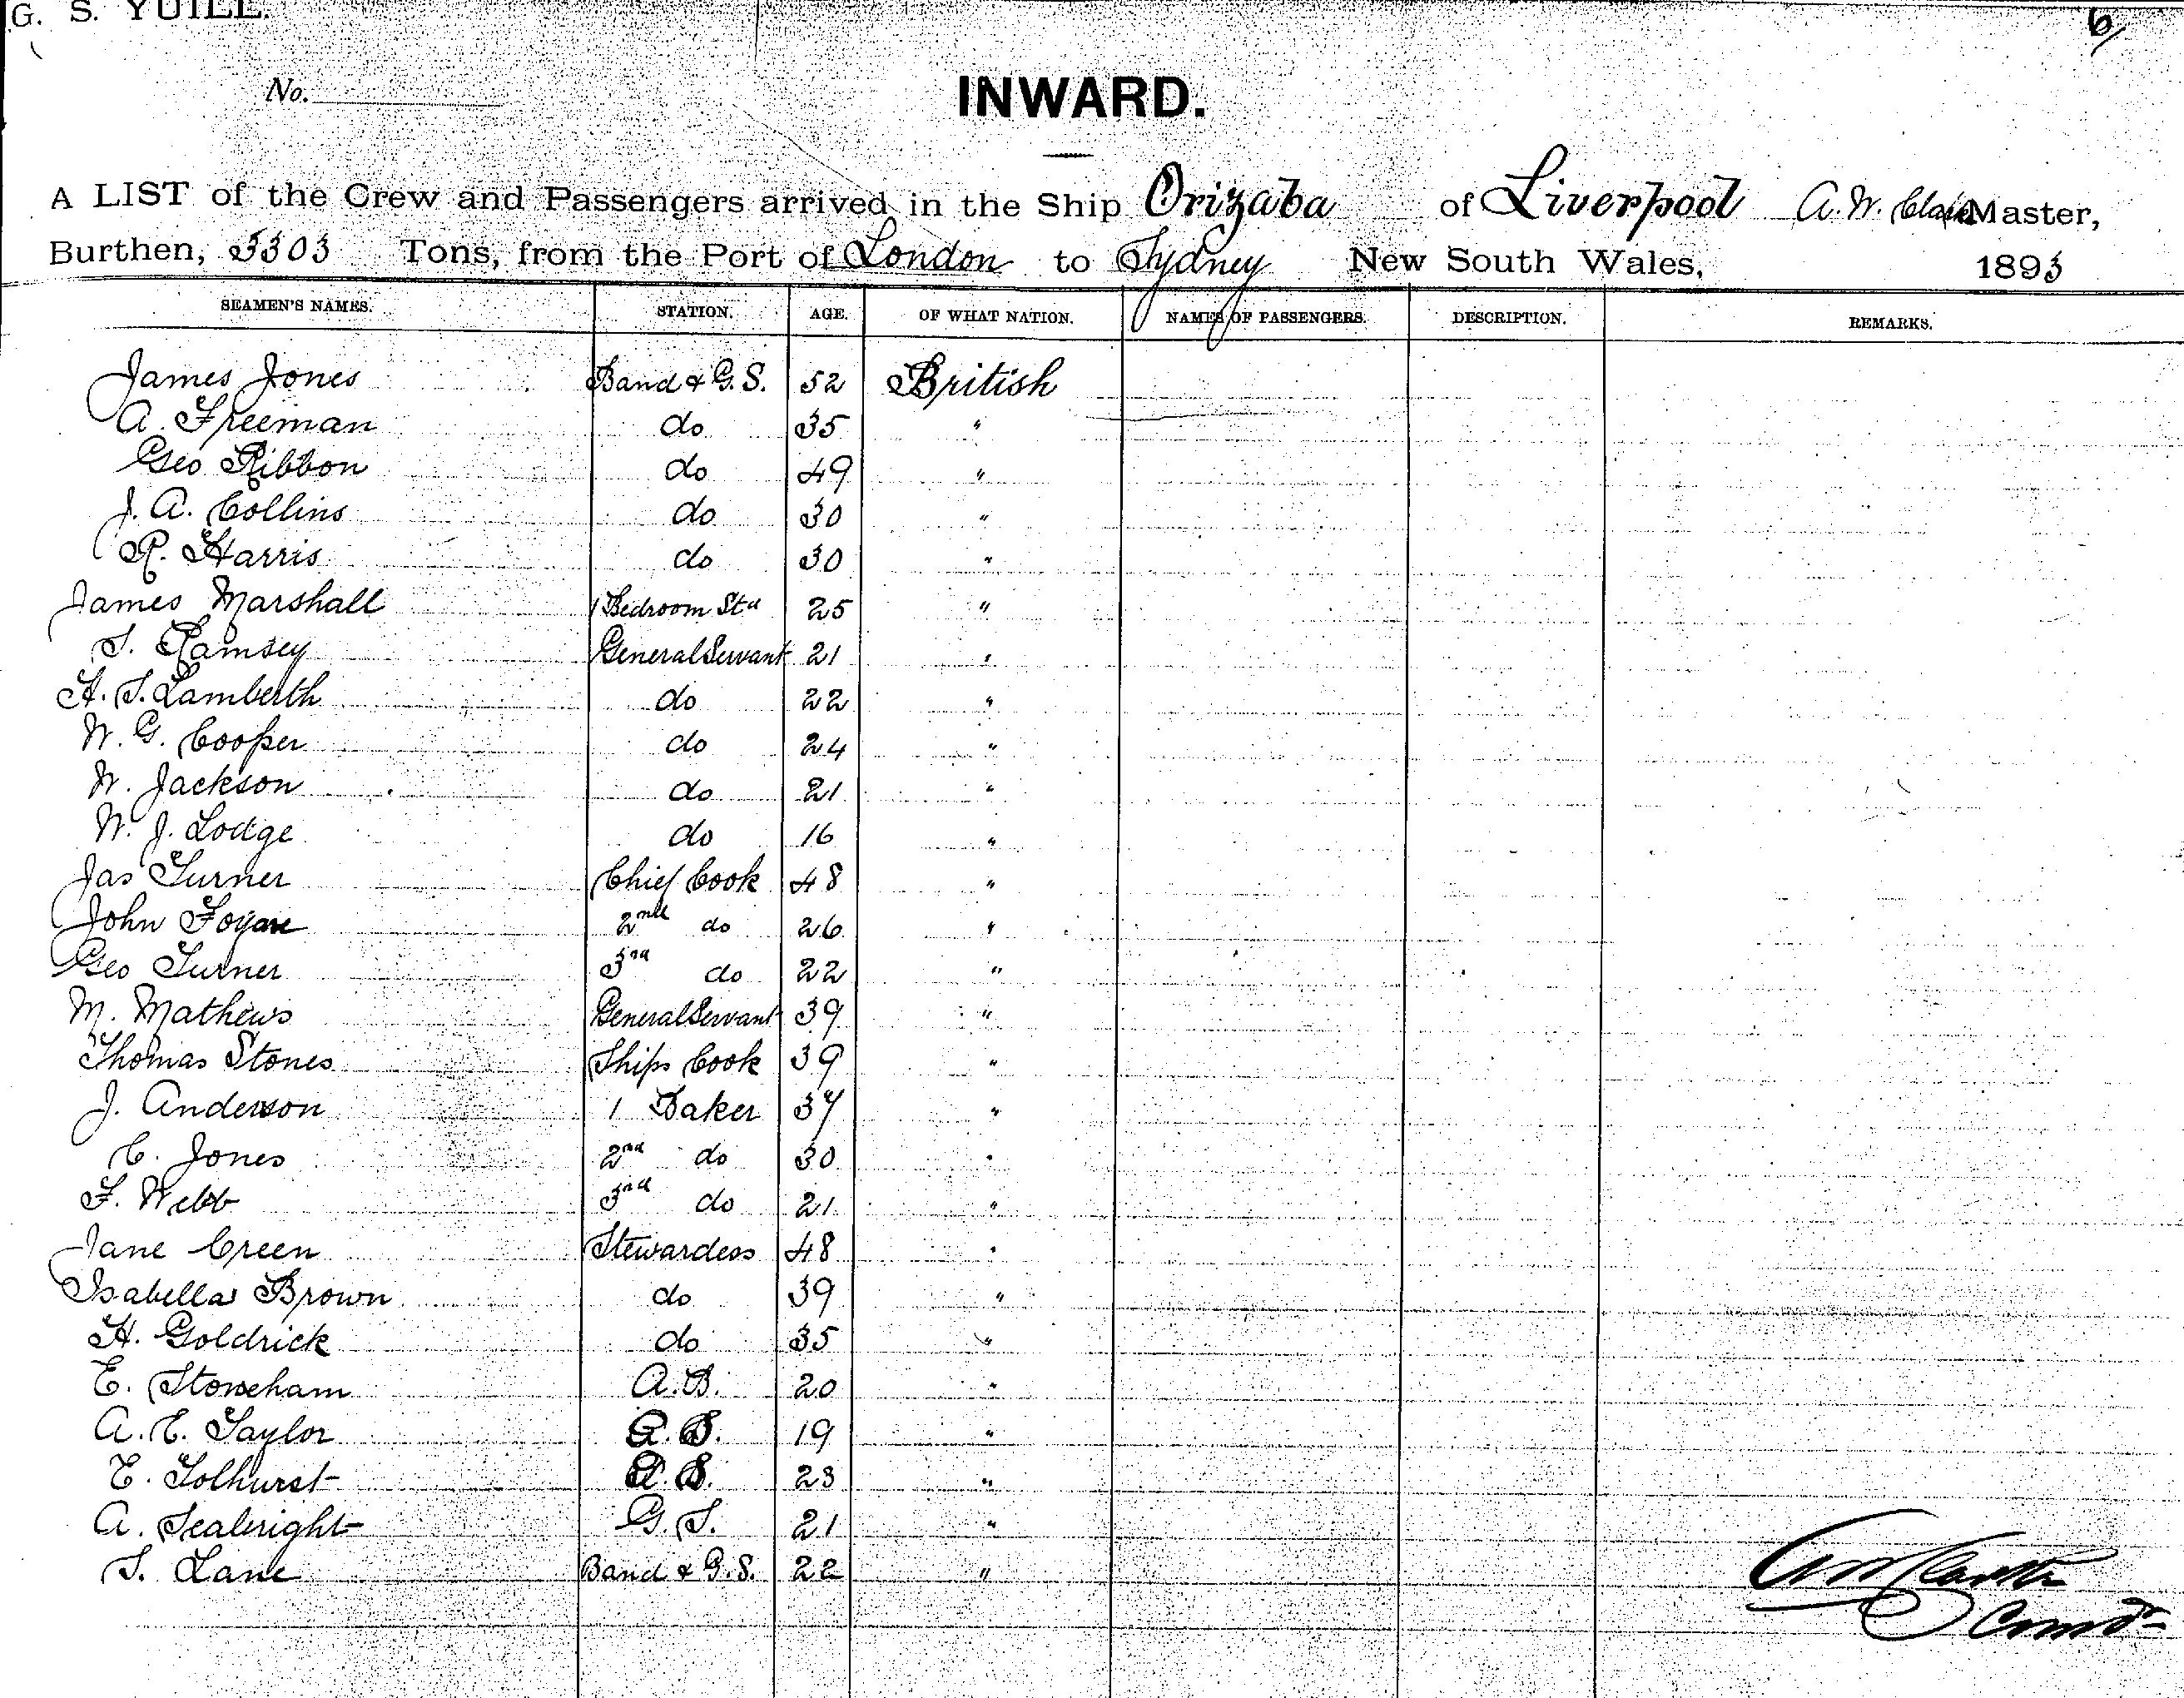 G. S. YUILL.
6/
No.
INWARD.
A LIST of the Crew and Passengers arrived in the Ship Orizaba of Liverpool A. W. Master,
Burthen, 3303 Tons, from the Port of London to Sydney New South Wales, 1893
SEAMEN'S NAMES. STATION. AGE. OF WHAT NATION. NAMES OF PASSENGERS. DESCRIPTION. REMARKS.
James Jones Band & G. S. 52 British
A. Freeman do 35 "
Geo Ribbon do 49 "
J. A. Collins do 30 "
R. Harris do 30 "
James Marshall 1 Bedroom Std 25 "
S. Ramsey General Servant 21 "
H. S. Lamberth do 22 "
W. G. Cooper do 24 "
W. Jackson do 21 "
W. J. Lodge do 16 "
Jas Turner Chief Cook 48 "
John 2nd do 26 "
Geo Turner 3rd do 22 "
M. Mathews General Servant 39 "
Thomas Stones Ships Cook 39 "
J. Anderson 1 Baker 37 "
C. Jones 2nd do 30 "
F. Webb 3rd do 21 "
Jane Green Stewardess 48 "
Isabella Brown do 39 "
H. Goldrick do 35 "
E. Stoneham A.B. 20 "
A. E. Taylor 19 "
E. Tolhurst 23 "
A. Sealright G. S. 21 "
S. Lane Band & G. S. 22 "